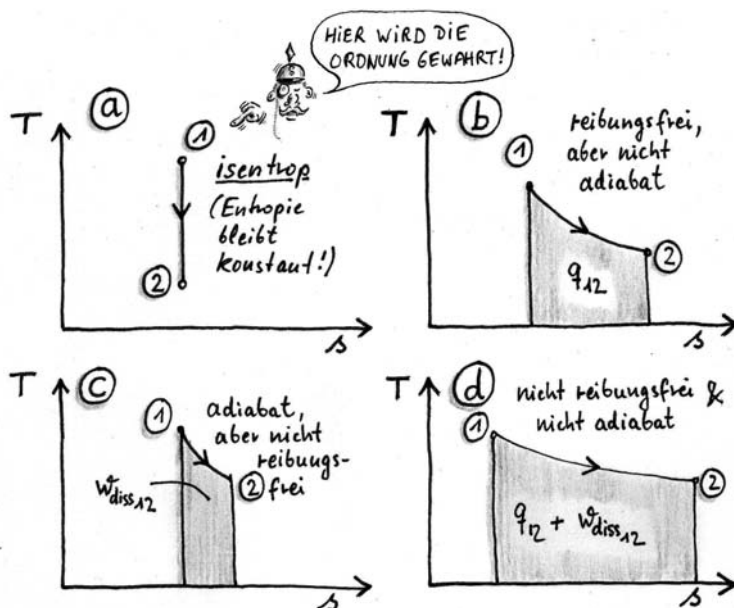 HIER WIRD DIE
ORDNUNG GEWAHRT!
a
T
1
isentrop
(Entropie
bleibt
konstant!)
2
s
b
T
reibungsfrei,
aber nicht
adiabat
1
q12
2
s
c
T
1
adiabat,
aber nicht
reibungs-
frei
wdiss12
2
s
d
T
nicht reibungsfrei &
nicht adiabat
1
q12 + wdiss12
2
s